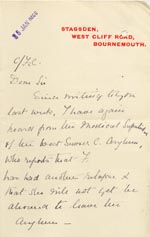 25 JAN 1922
STAGSDEN,
WEST CLIFF ROAD,
BOURNEMOUTH.
Dear Sir
Since writing to you
last week, I have again
heard from the Medical
of the West Sussex C. Asylum,
who reports that
has had another relapse &
that she will not yet be
allowed to leave the
Asylum -